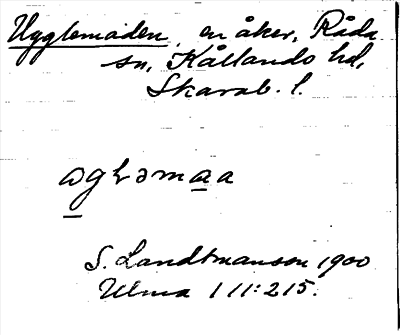 Ugglemaden, en åker, Råda
sn, Kållands hd,
Skarab. l.
S. Landtmanson 1900
Ulma 111:215.